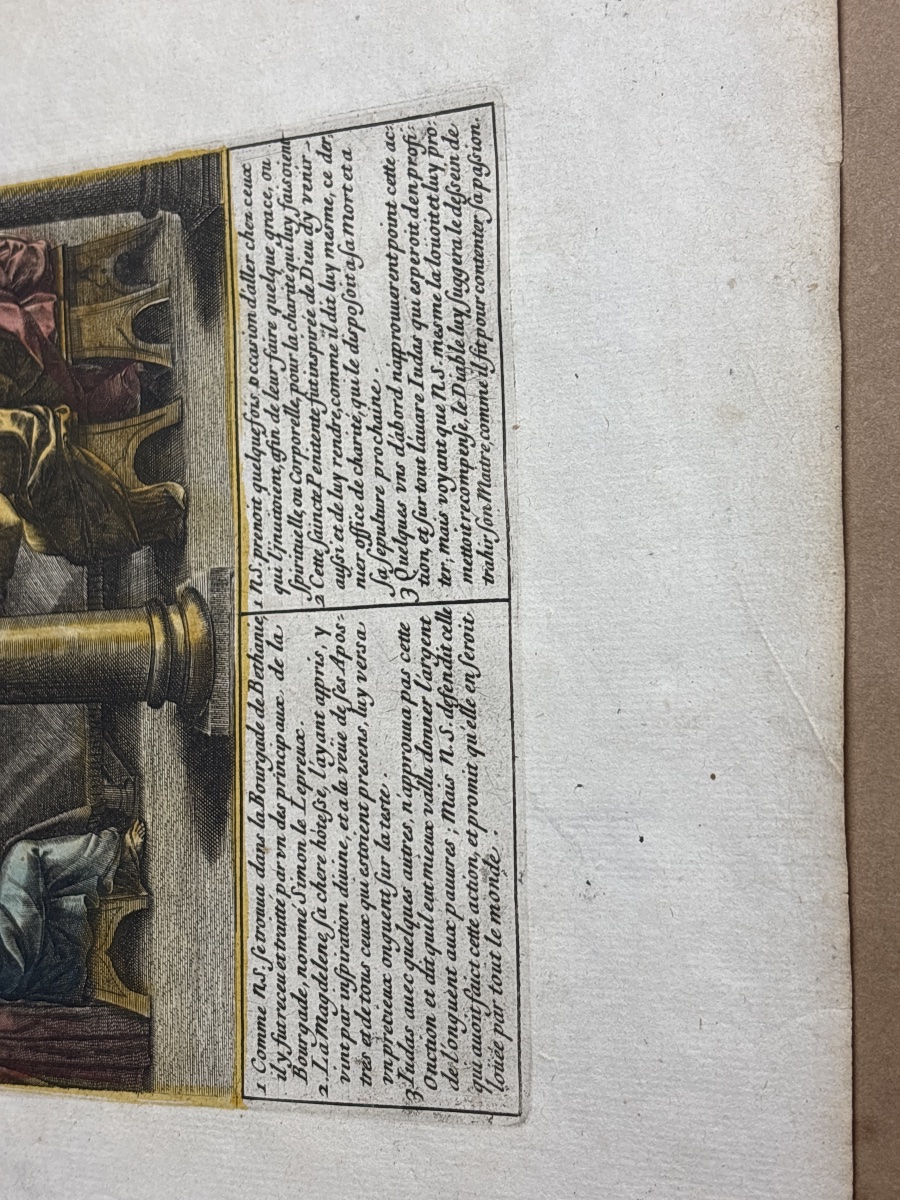 1 Comme N.S. se trouua dans la Bourgade de Bethanie,
il y fut receu et traitté par vn des principaux de la
Bourgade, nommé Simon le Lepreux.
2 La Magdelene, sa chere hôtesse, l'ayant appris, y
vint par inspiration diuine, et a la veüe de ses Apos=
tres et de tous ceux qui estoient presens, luy versa
vn precieux onguent sur la teste.
3 Iudas auec quelques autres, n'approuua pas cette
Onction et dit qu'il eut mieux vallu donner l'argent
de l'onguent aux pauures; Mais N.S. defendit celle
qui auoit faict cette action, et promit qu'elle en seroit
loüée par tout le monde.
1 N.S. prenoit quelque fois occasion d'aller chez ceux
qui l'inuitoient, afin de leur faire quelque grace, ou
spirituelle, ou Corporelle, pour la charité qu'ils luy faisoient
2 Cette saincte Penitente fut inspirée de Dieu d'y venir
aussi et de luy rendre, comme il dit luy mesme, ce der,
nier office de charité, qui le disposoit a sa Mort et a
sa sepulture prochaine.
3 Quelques vns d'abord n'approuuerent point cette ac:
tion, et sur tout l'auare Iudas qui esperoit d'en profi:
ter; mais voyant que N.S. mesme la loüoit et luy pro:
mettoit recompense, le Diable luy suggera le dessein de
trahir son Maitre, comme il fit pour contenter sa passion.